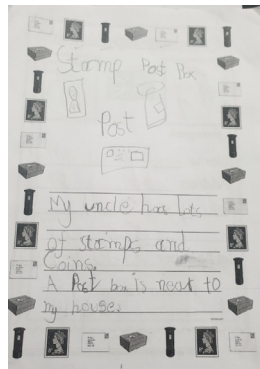 Stamp Post Box
Post
My uncle has lots
of stamps and
Coins.
A Post box is next to
my house.